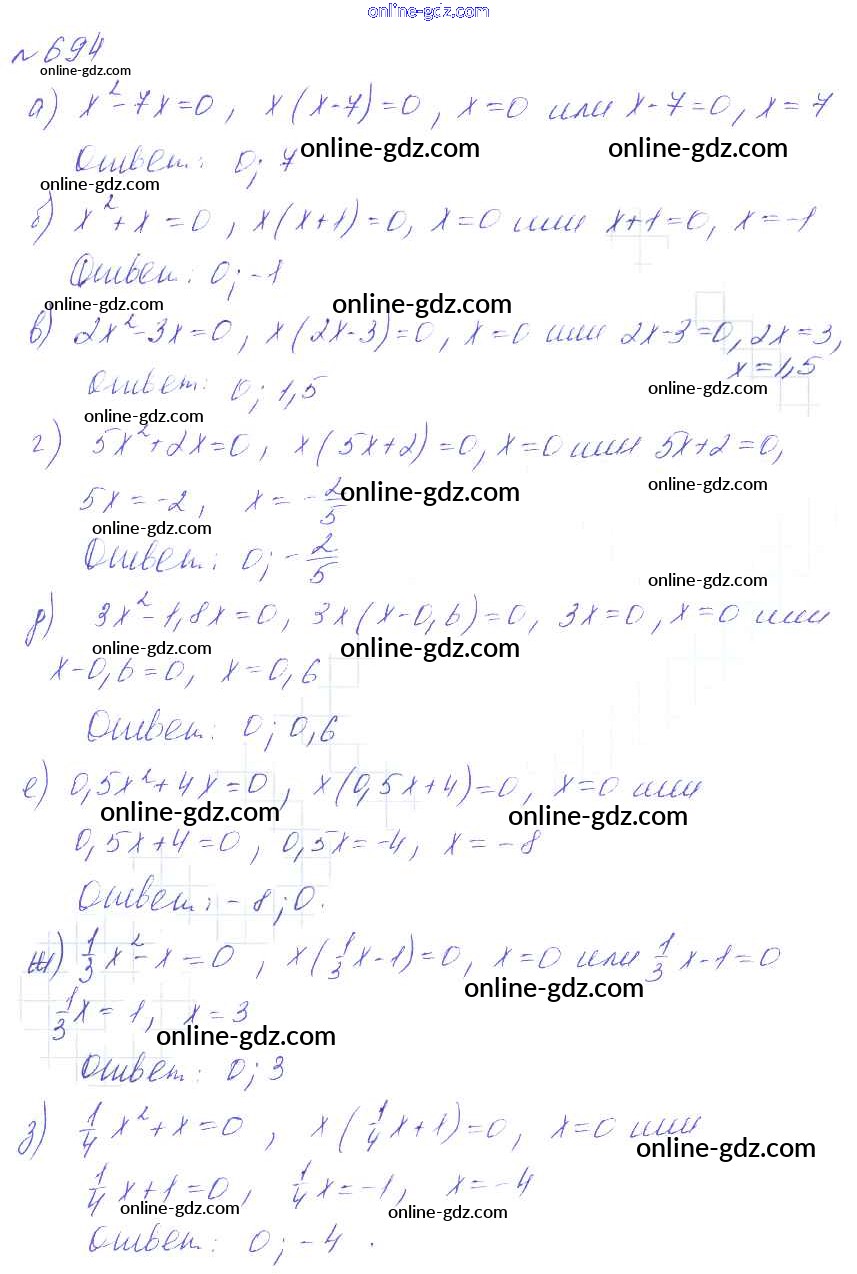 online-gdz.com
№ 694
online-gdz.com
а) x²-7x=0, x(x-7)=0, x=0 или x-7=0, x=7
Ответ: 0; 7 online-gdz.com online-gdz.com
online-gdz.com
б) x²+x=0, x(x+1)=0, x=0 или x+1=0, x=-1
Ответ: 0; -1
online-gdz.com online-gdz.com
в) 2x²-3x=0, x(2x-3)=0, x=0 или 2x-3=0, 2x=3,
x=1,5
Ответ: 0; 1,5 online-gdz.com
online-gdz.com
г) 5x²+2x=0, x(5x+2)=0, x=0 или 5x+2=0,
5x=-2, x=-2/5 online-gdz.com online-gdz.com
online-gdz.com
Ответ: 0; -2/5
online-gdz.com
д) 3x²-1,8x=0, 3x(x-0,6)=0, 3x=0, x=0 или
online-gdz.com online-gdz.com
x-0,6=0, x=0,6
Ответ: 0; 0,6
е) 0,5x²+4x=0, x(0,5x+4)=0, x=0 или
online-gdz.com online-gdz.com
0,5x+4=0, 0,5x=-4, x=-8
Ответ: -8; 0.
ж) 1/3x²-x=0, x(1/3x-1)=0, x=0 или 1/3x-1=0
online-gdz.com
1/3x=1, x=3
online-gdz.com
Ответ: 0; 3
з) 1/4x²+x=0, x(1/4x+1)=0, x=0 или
online-gdz.com
1/4x+1=0, 1/4x=-1, x=-4
online-gdz.com online-gdz.com
Ответ: 0; -4.